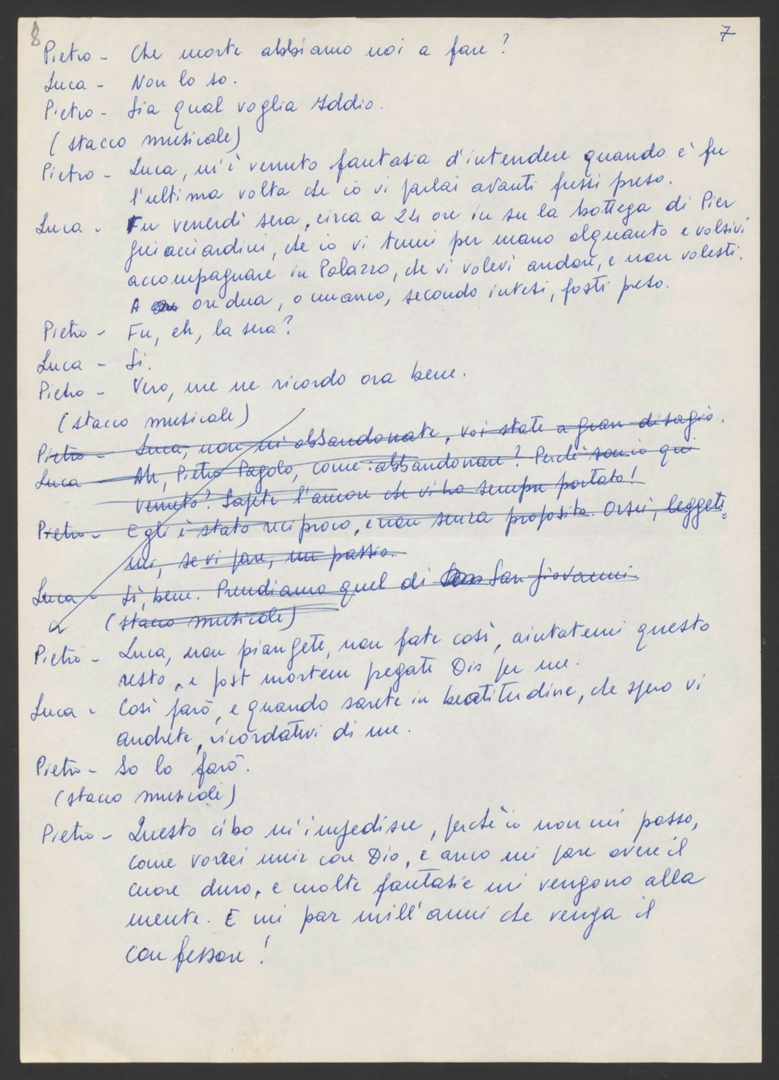 8
7
Pietro - Che morte abbiamo noi a fare?
Luca - Non lo so.
Pietro - Sia qual voglia Iddio.
(stacco musicale)
Pietro - Luca, m'è venuto fantasia d'intendere quando è fu
l'ultima volta che io vi parlai avanti fussi preso.
Luca - Fu venerdì sera, circa a 24 ore in su la bottega di Pier
Guicciardini, che io vi tenni per mano alquanto e volsivi
accompagnare in Palazzo, che vi volevi andare, e non volesti.
A ore dua, o manco, secondo intesi, fosti preso.
Pietro - Fu, eh, la sera?
Luca - Sì.
Pietro - Vero, me ne ricordo ora bene.
(stacco musicale)
Pietro - Luca, non mi abbandonate, voi state a gran disagio.
Luca - Ah, Pietro Pagolo, come abbandonare? Perché son io qui
venuto? Sapete l'amore che vi ho sempre portato!
Pietro - Egli è stato reciproco, e non senza proposito. Orsù, leggete=
mi, se vi pare, un passio.
Luca - Sì, bene. Prendiamo quel di San Giovanni.
(stacco musicale)
Pietro - Luca, non piangete, non fate così, aiutatemi questo
resto, e post mortem pregate Dio per me.
Luca - Così farò, e quando sarete in beatitudine, che spero vi
andrete, ricordativi di me.
Pietro - So lo farò.
(stacco musicale)
Pietro - Questo cibo m'impedisce, perché io non mi posso,
come vorrei unir con Dio, e anco mi pare avere il
cuore duro, e molte fantasie mi vengono alla
mente. E mi par mill'anni che venga il
confessore!